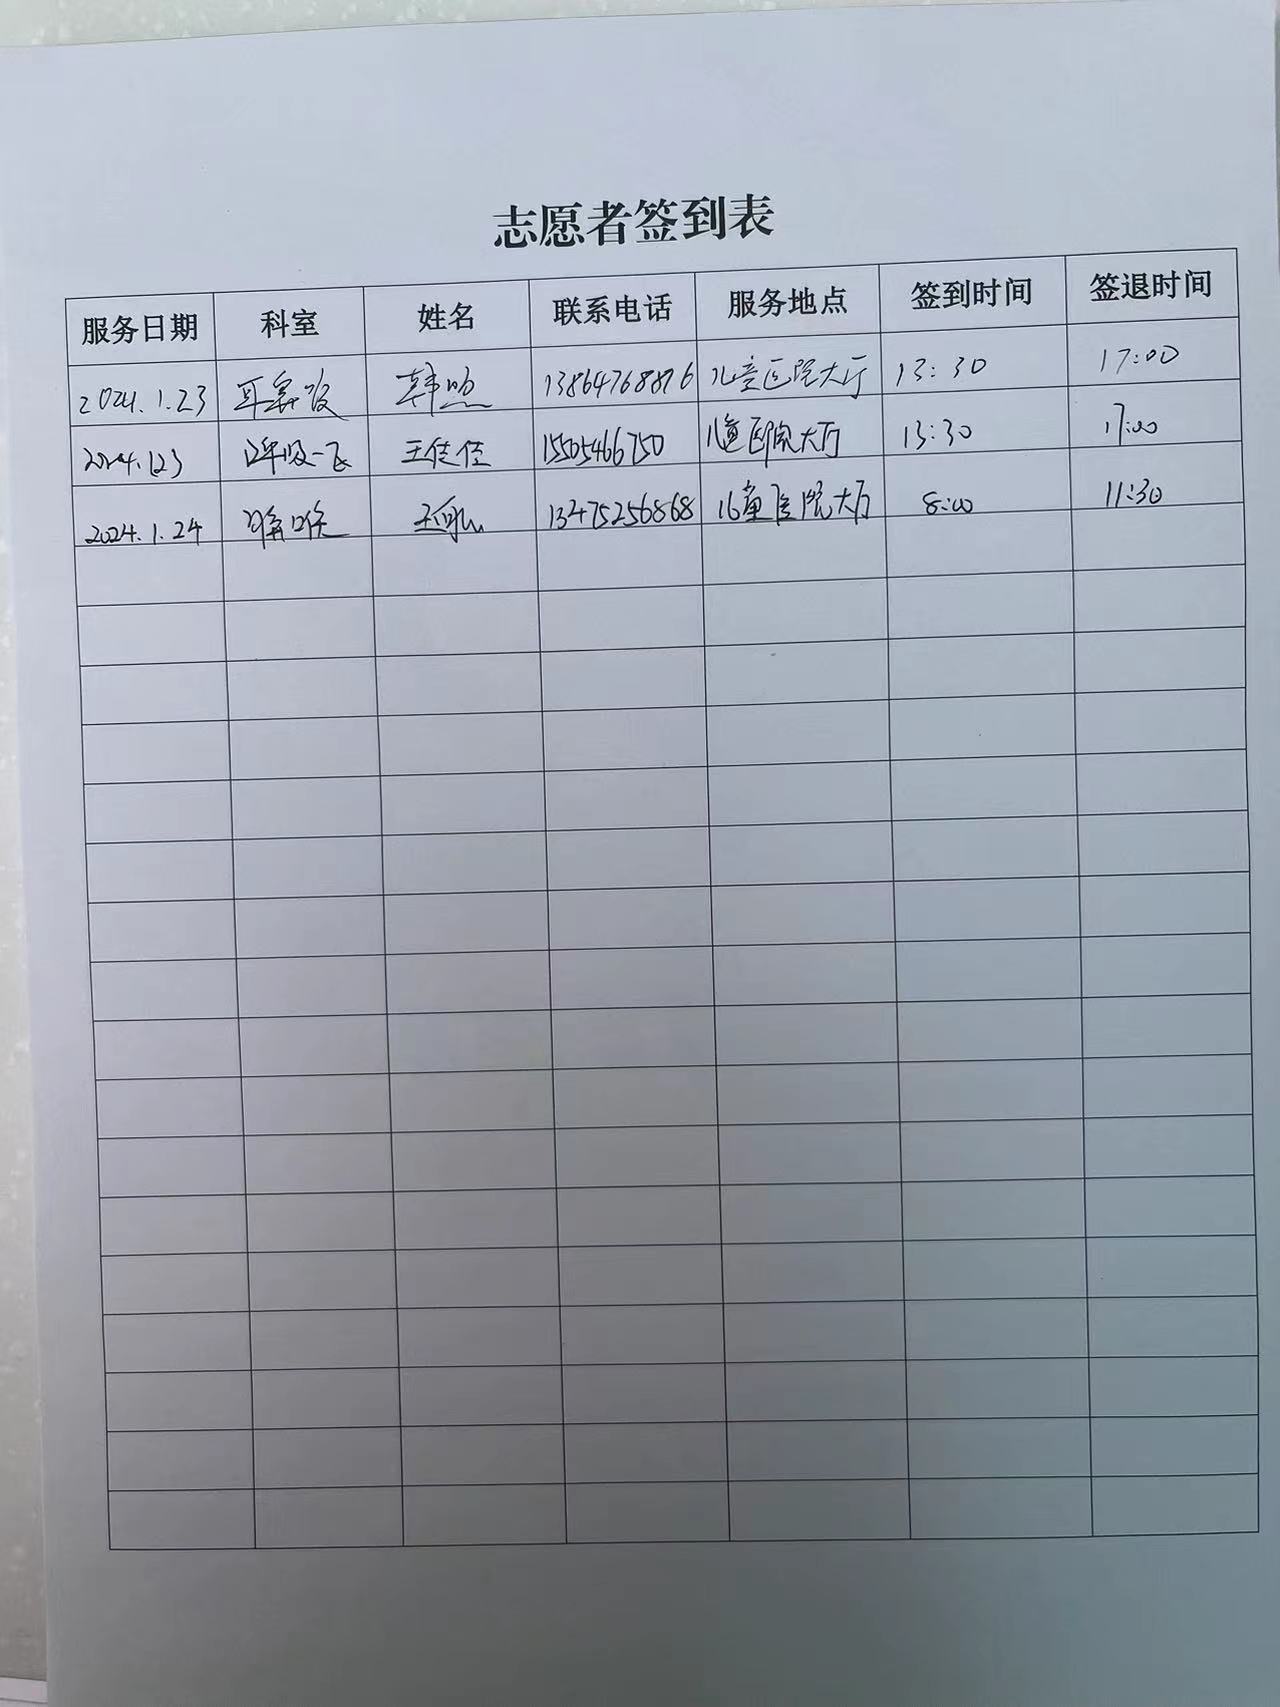 志愿者签到表
服务日期 科室 姓名 联系电话 服务地点 签到时间 签退时间
2024.1.23 耳鼻喉 韩 13864768876 儿童医院大厅 13:30 17:00
2024.1.23 呼吸一区 王佳佳 15505466750 儿童医院大厅 13:30 17:00
2024.1.24 13475256868 儿童医院大厅 8:00 11:30